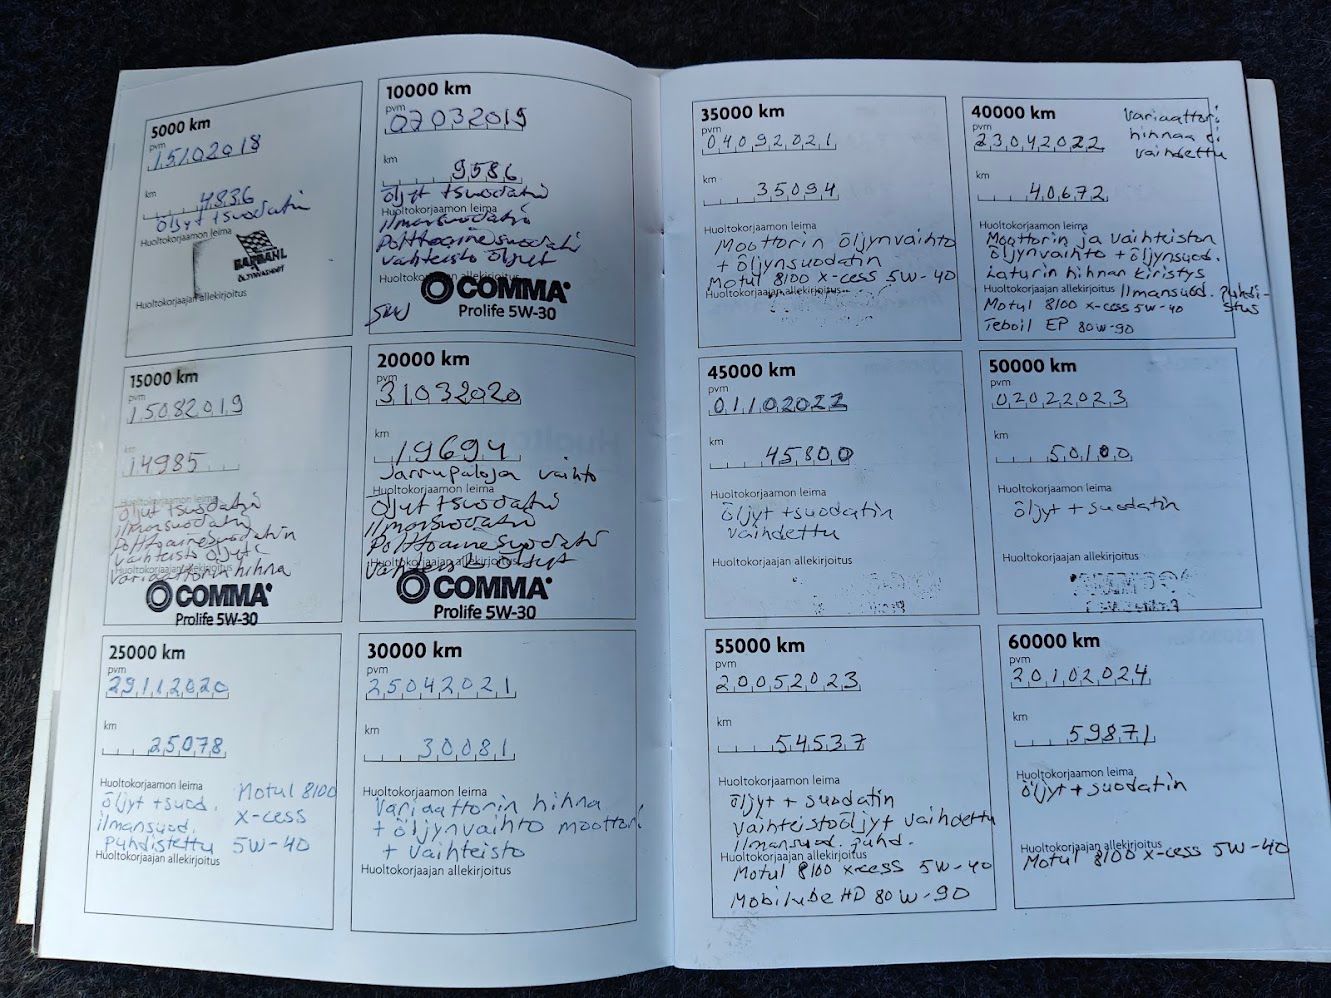 5000 km
pvm
15102018
km
4836
öljyt + suodatin
Huoltokorjaamon leima
BARDAHL
ÖLJYNVAIHDOT
Huoltokorjaajan allekirjoitus
10000 km
pvm
07032019
km
9586
öljyt + suodatin
Huoltokorjaamon leima
ilmansuodatin
Polttoainesuodatin
vaihteisto öljyt
Huoltokorjaajan allekirjoitus
COMMA
Prolife 5W-30
15000 km
pvm
15082019
km
14985
Huoltokorjaamon leima
öljyt + suodatin
ilmansuodatin
Polttoainesuodatin
vaihteisto öljyt
Huoltokorjaajan allekirjoitus
variaattorin hihna
COMMA
Prolife 5W-30
20000 km
pvm
31032020
km
19694
Jarrupaloja vaihto
Huoltokorjaamon leima
öljyt + suodatin
ilmansuodatin
Polttoainesuodatin
Huoltokorjaajan allekirjoitus
vaihteisto öljyt
COMMA
Prolife 5W-30
25000 km
pvm
29112020
km
25078
Huoltokorjaamon leima
öljyt + suod. Motul 8100
ilmansuod. x-cess
puhdistettu 5W-40
Huoltokorjaajan allekirjoitus
30000 km
pvm
25042021
km
30081
Huoltokorjaamon leima
Variaattorin hihna
+ öljynvaihto moottori
+ vaihteisto
Huoltokorjaajan allekirjoitus
35000 km
pvm
04092021
km
35094
Huoltokorjaamon leima
Moottorin öljynvaihto
+ öljynsuodatin
Motul 8100 x-cess 5W-40
Huoltokorjaajan allekirjoitus
40000 km
pvm
23042022
variaattori
hihnaa ei
vaihdettu
km
40672
Huoltokorjaamon leima
Moottorin ja vaihteiston
öljynvaihto + öljynsuod.
Laturin hihnan kiristys
Huoltokorjaajan allekirjoitus Ilmansuod. puhdi-
stus
Motul 8100 x-cess 5W-40
Teboil EP 80W-90
45000 km
pvm
01102022
km
45800
Huoltokorjaamon leima
öljyt + suodatin
vaihdettu
Huoltokorjaajan allekirjoitus
50000 km
pvm
02022023
km
50100
Huoltokorjaamon leima
öljyt + suodatin
Huoltokorjaajan allekirjoitus
55000 km
pvm
20052023
km
54537
Huoltokorjaamon leima
öljyt + suodatin
Vaihteistoöljyt vaihdettu
ilmansuod. puhd.
Huoltokorjaajan allekirjoitus
Motul 8100 x-cess 5W-40
Mobilube HD 80W-90
60000 km
pvm
20102024
km
59871
Huoltokorjaamon leima
öljyt + suodatin
Huoltokorjaajan allekirjoitus
Motul 8100 x-cess 5W-40